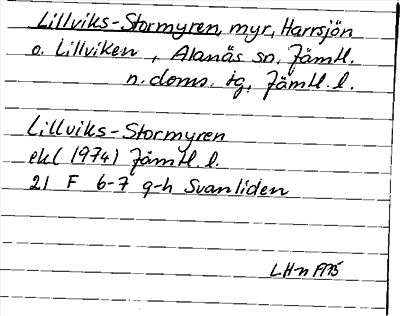 Lillviks-Stormyren, myr, Harrsjön
o. Lillviken, Alanäs sn, Jämtl.
n. doms. tg, Jämtl. l.
Lillviks-Stormyren
ekl (1974) Jämtl. l.
21 F 6-7 g-h Svanliden
LH-n 1975